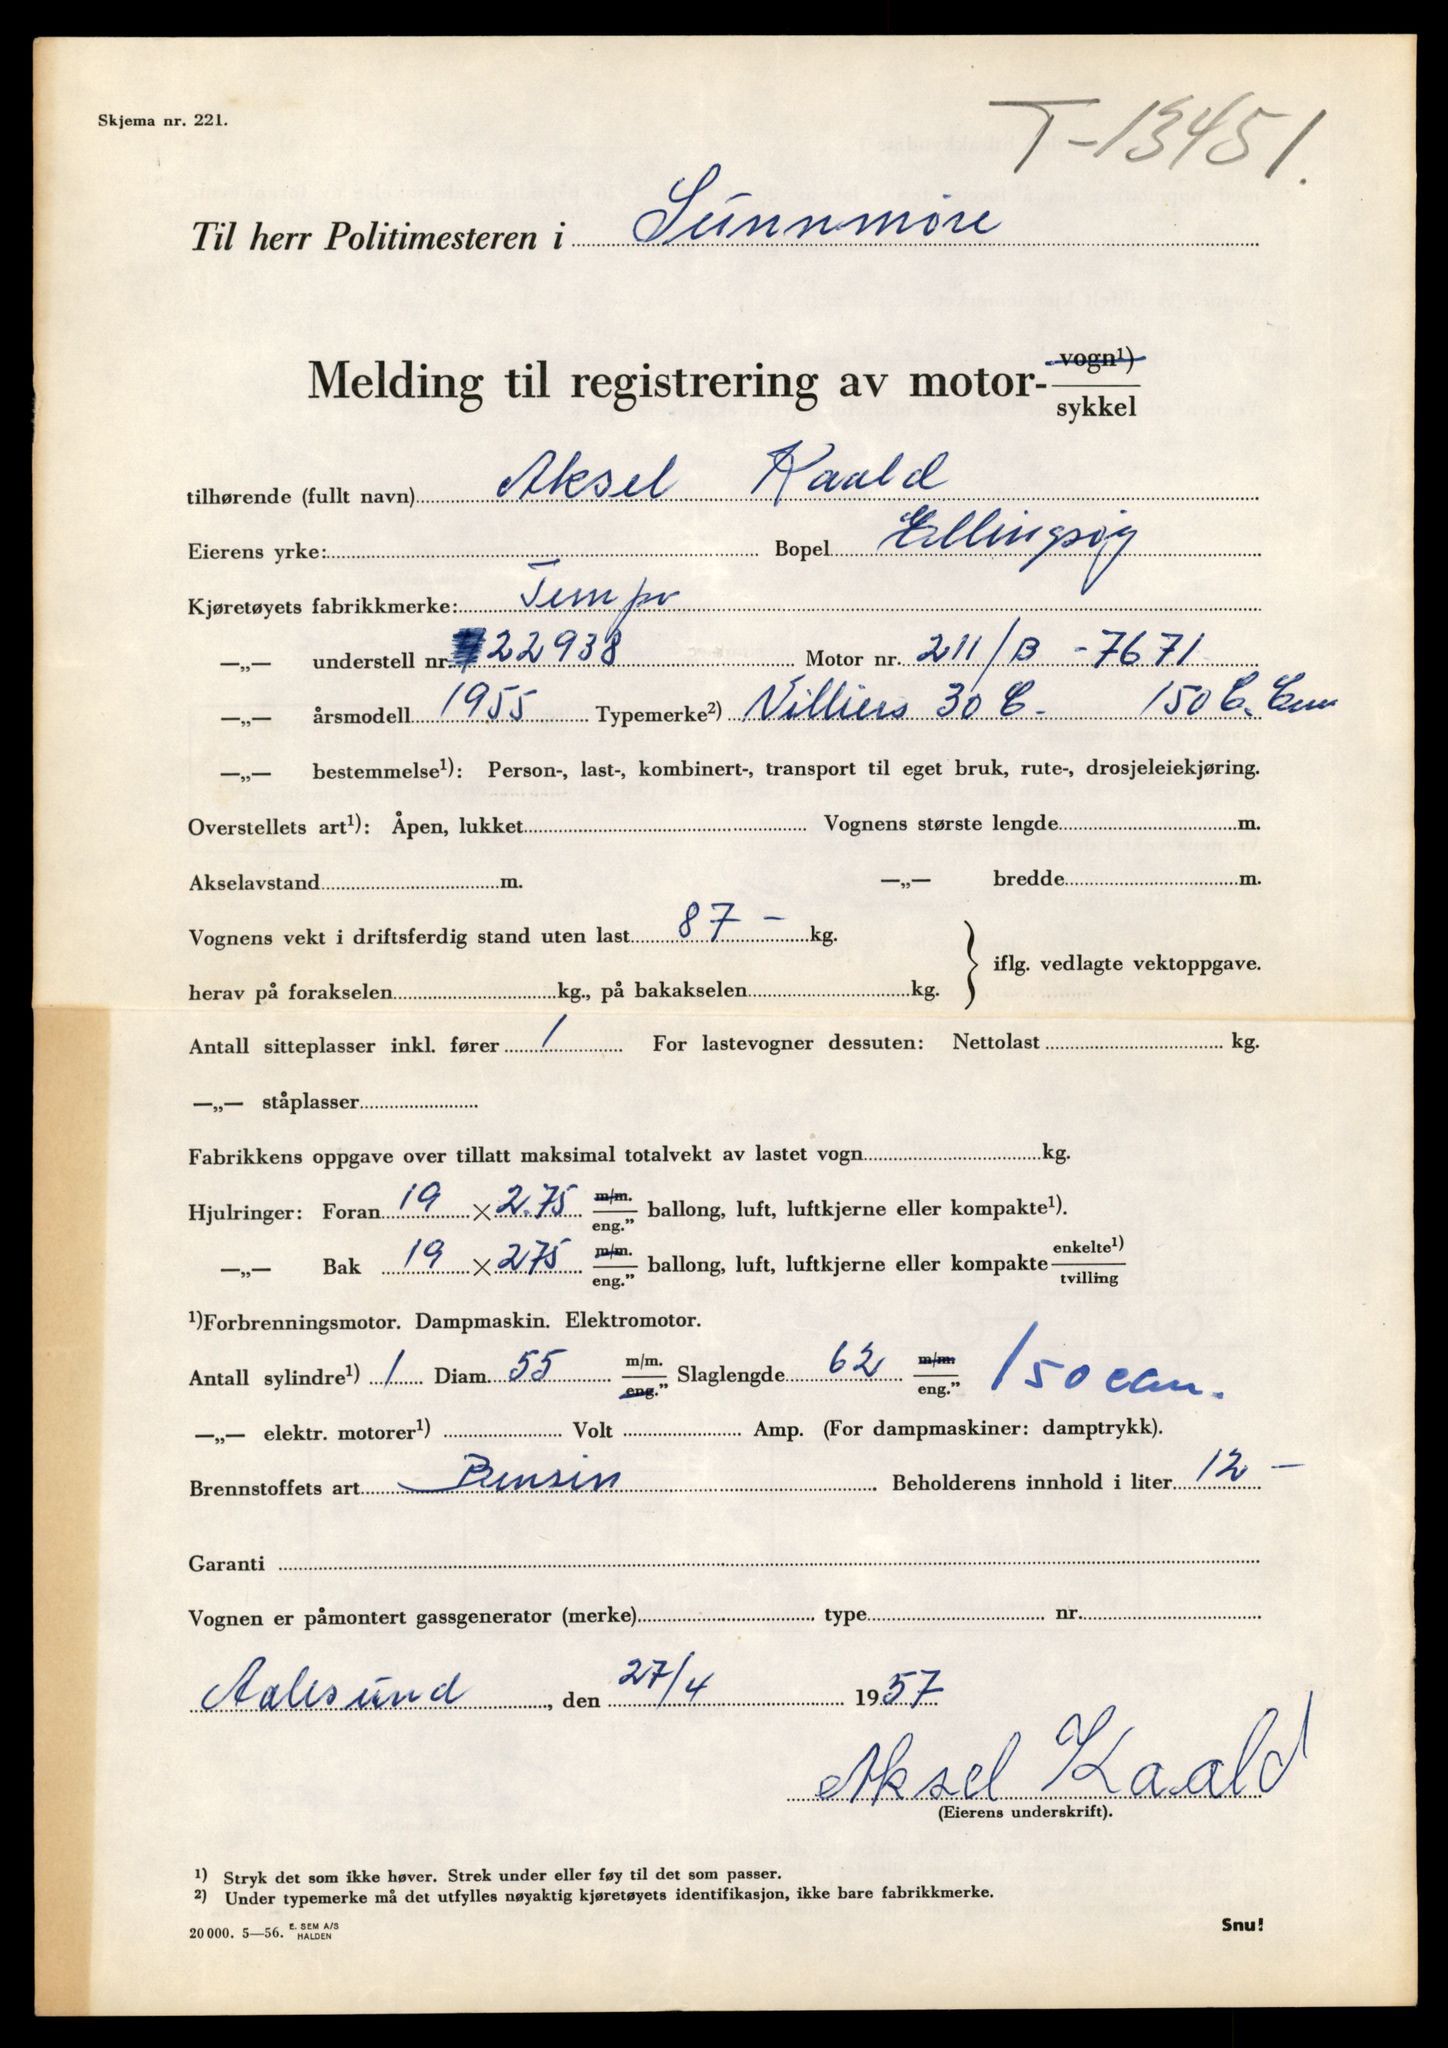 Skjema nr. 221.
T-13451.
Til herr Politimesteren i Sunnmöre
Melding til registrering av motor- vogn¹) sykkel
tilhørende (fullt navn) Aksel Kaald
Eierens yrke: Bopel Ellingsøy
Kjøretøyets fabrikkmerke: Tempo
—„— understell nr. 22938 Motor nr. 211/B -7671
—„— årsmodell 1955 Typemerke²) Villiers 30 C - 150 C. Cm
—„— bestemmelse¹): Person-, last-, kombinert-, transport til eget bruk, rute-, drosjeleiekjøring.
Overstellets art¹): Åpen, lukket Vognens største lengde m.
Akselavstand m. —„— bredde m.
Vognens vekt i driftsferdig stand uten last 87 - kg.
iflg. vedlagte vektoppgave.
herav på forakselen kg., på bakakselen kg.
Antall sitteplasser inkl. fører 1 For lastevogner dessuten: Nettolast kg.
—„— ståplasser
Fabrikkens oppgave over tillatt maksimal totalvekt av lastet vogn kg.
Hjulringer: Foran 19 × 2.75 m/m. eng.” ballong, luft, luftkjerne eller kompakte¹).
—„— Bak 19 × 275 m/m. eng.” ballong, luft, luftkjerne eller kompakte enkelte¹) tvilling
¹)Forbrenningsmotor. Dampmaskin. Elektromotor.
Antall sylindre¹) 1 Diam. 55 m/m. eng.” Slaglengde 62 m/m. eng.” 150 ccm.
—„— elektr. motorer¹) Volt Amp. (For dampmaskiner: damptrykk).
Brennstoffets art Bensin Beholderens innhold i liter 12 -
Garanti
Vognen er påmontert gassgenerator (merke) type nr.
Aalesund, den 27/4 1957
Aksel Kaald
(Eierens underskrift).
¹) Stryk det som ikke høver. Strek under eller føy til det som passer.
²) Under typemerke må det utfylles nøyaktig kjøretøyets identifikasjon, ikke bare fabrikkmerke.
20 000. 5—56. E. SEM A/S HALDEN
Snu!